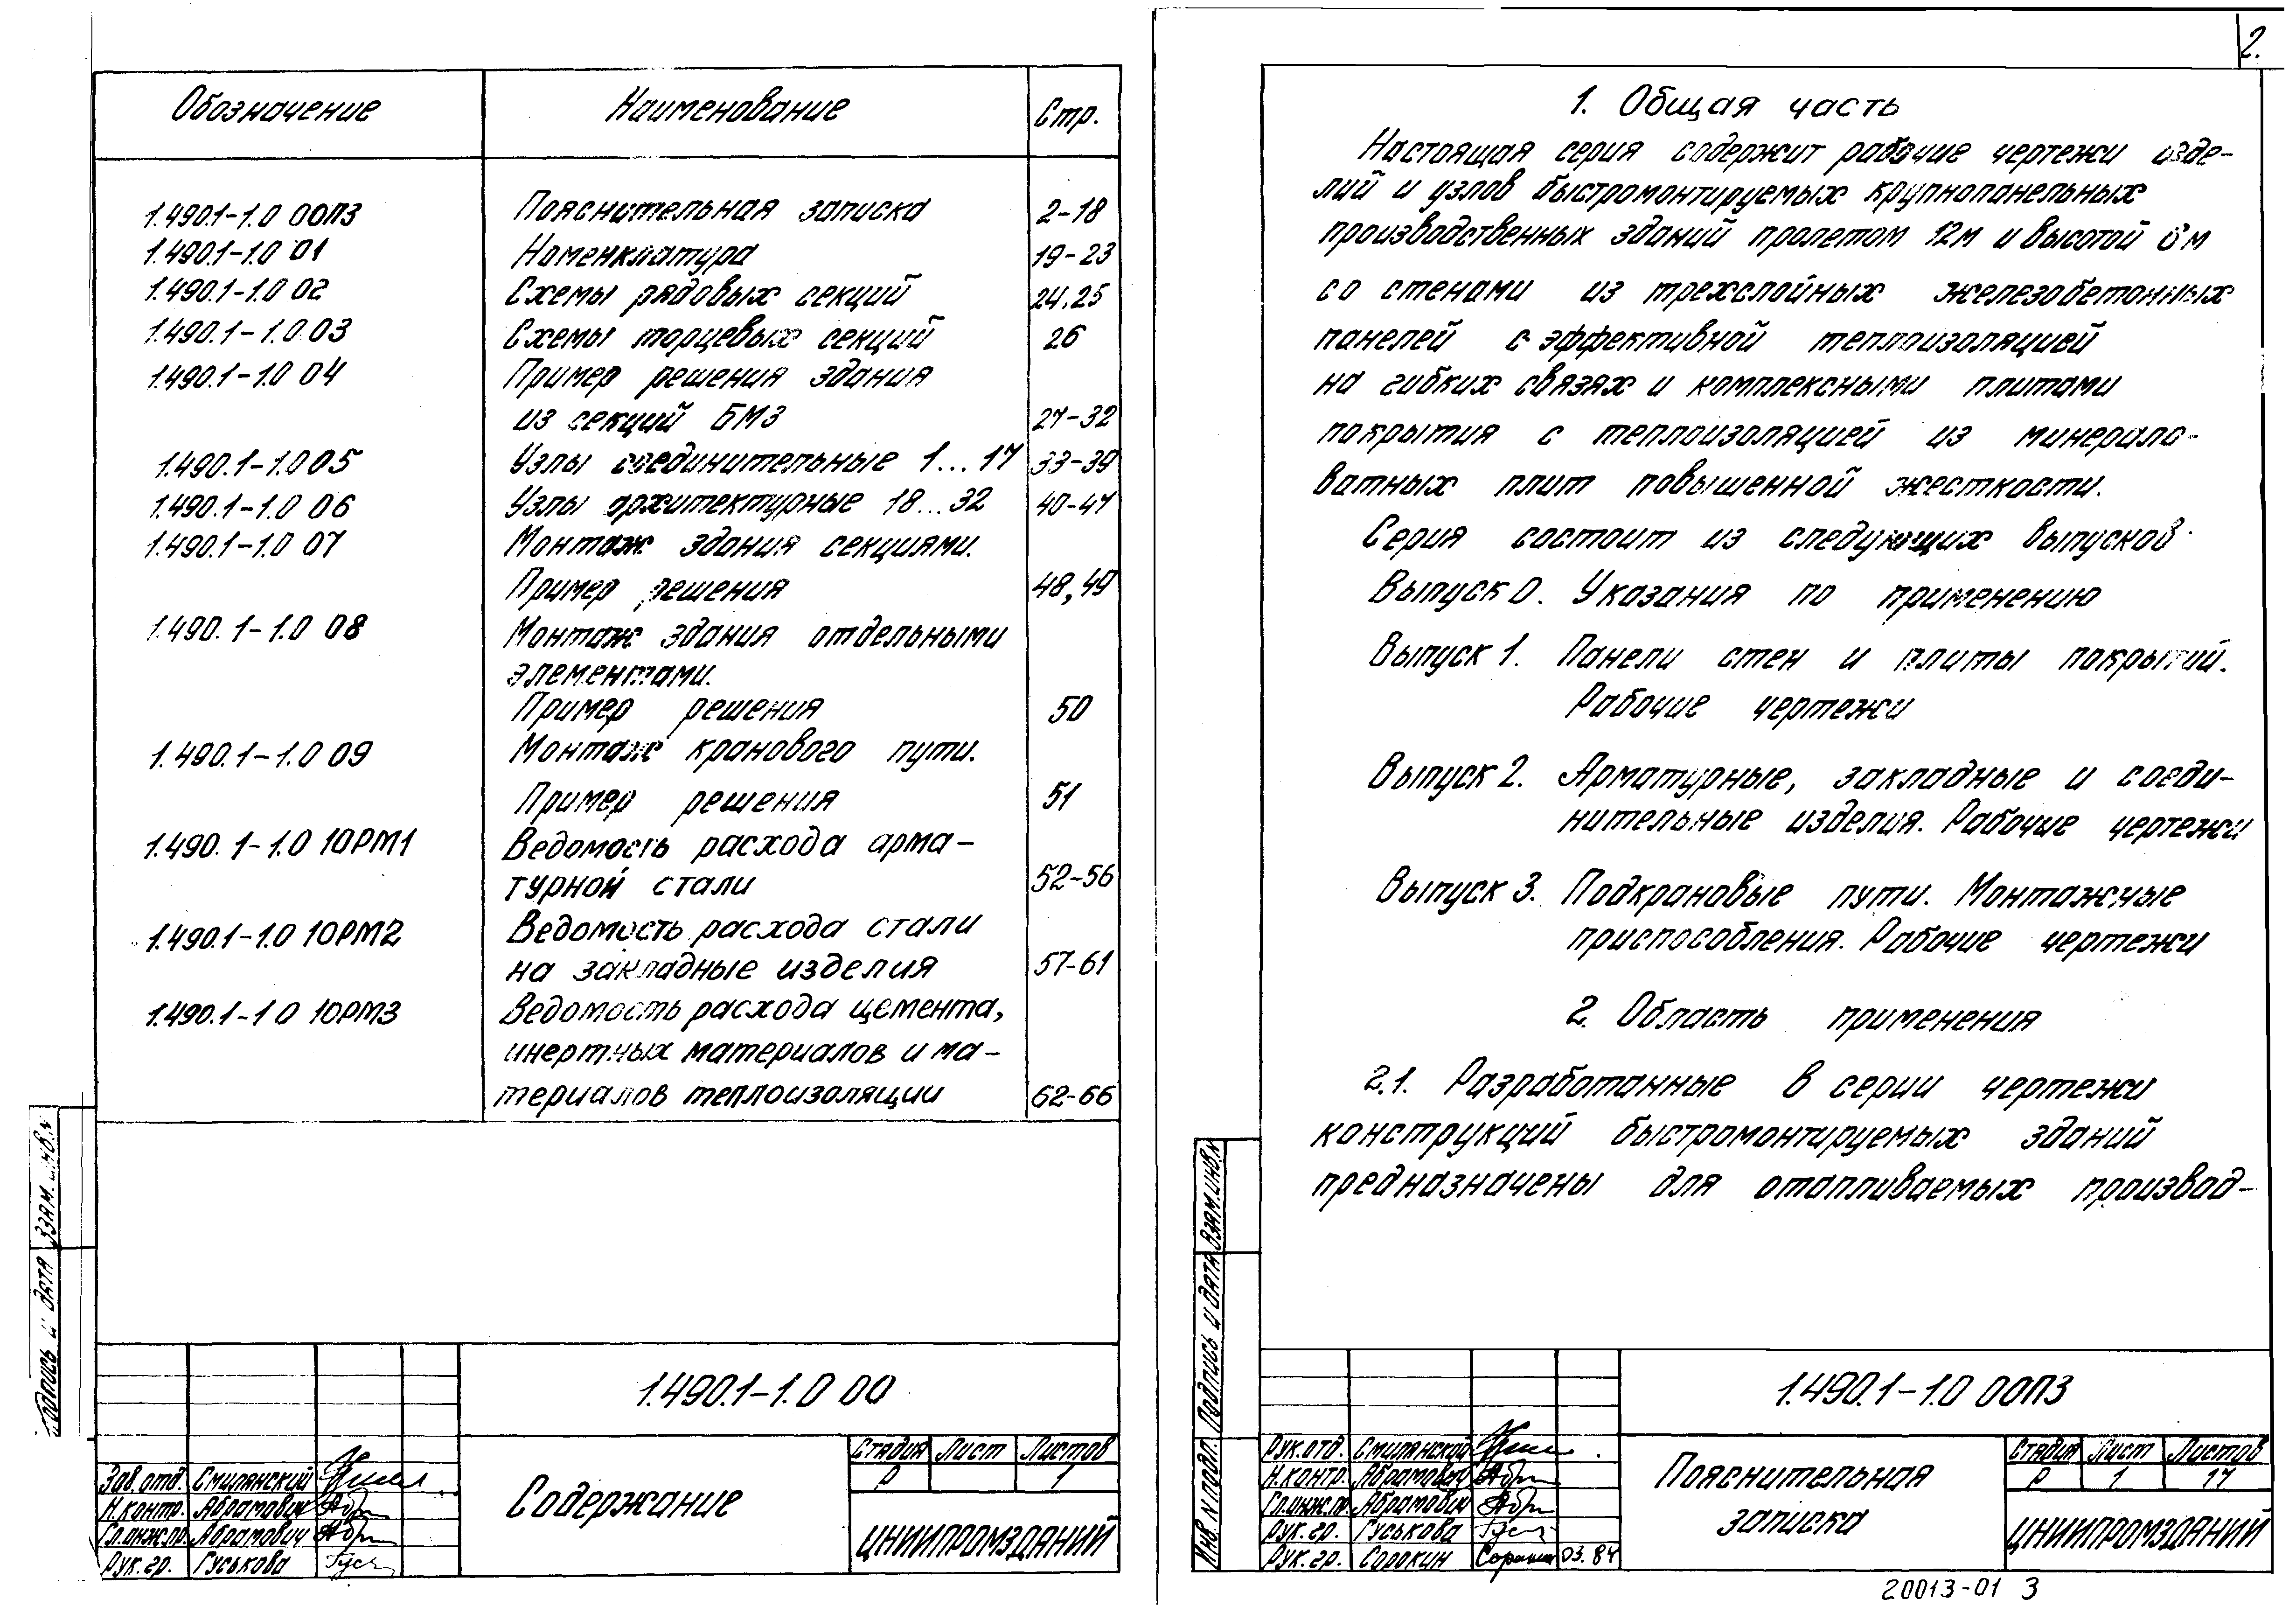 Обозначение Наименование Стр.
1.490.1-1.0 00ПЗ Пояснительная записка 2-18
1.490.1-1.0 01 Номенклатура 19-23
1.490.1-1.0 02 Схемы рядовых секций 24,25
1.490.1-1.0 03 Схемы торцевых секций 26
1.490.1-1.0 04 Пример решения здания
из секций БМЗ 27-32
1.490.1-1.0 05 Узлы соединительные 1...17 33-39
1.490.1-1.0 06 Узлы архитектурные 18...32 40-47
1.490.1-1.0 07 Монтаж здания секциями.
Пример решения 48,49
1.490.1-1.0 08 Монтаж здания отдельными
элементами.
Пример решения 50
1.490.1-1.0 09 Монтаж кранового пути.
Пример решения 51
1.490.1-1.0 10РМ1 Ведомость расхода арма-
турной стали 52-56
1.490.1-1.0 10РМ2 Ведомость расхода стали
на закладные изделия 57-61
1.490.1-1 0 10РМ3 Ведомость расхода цемента,
инертных материалов и ма-
териалов теплоизоляции 62-66
Подпись и дата Взам. инв. №
1.490.1-1.0 00
Содержание
Стадия Лист Листов
Р 1
ЦНИИПРОМЗДАНИЙ
Зав. отд. Смилянский
Н.контр. Абрамович
Гл.инж.пр. Абрамович
Рук.гр. Гуськова
2.
1. Общая часть
Настоящая серия содержит рабочие чертежи изде-
лий и узлов быстромонтируемых крупнопанельных
производственных зданий пролетом 12м и высотой 6м
со стенами из трехслойных железобетонных
панелей с эффективной теплоизоляцией
на гибких связях и комплексными плитами
покрытия с теплоизоляцией из минерало-
ватных плит повышенной жесткости.
Серия состоит из следующих выпусков.
Выпуск 0. Указания по применению
Выпуск 1. Панели стен и плиты покрытий.
Рабочие чертежи
Выпуск 2. Арматурные, закладные и соеди-
нительные изделия. Рабочие чертежи
Выпуск 3. Подкрановые пути. Монтажные
приспособления. Рабочие чертежи
2. Область применения
2.1. Разработанные в серии чертежи
конструкций быстромонтируемых зданий
предназначены для отапливаемых производ-
Инв. № подл. Подпись и дата Взам. инв. №
1.490.1-1.0 00ПЗ
Пояснительная
записка
Стадия Лист Листов
Р 1 17
ЦНИИПРОМЗДАНИЙ
Рук.отд. Смилянский
Н.контр. Абрамович
Гл.инж.пр. Абрамович
Рук.гр. Гуськова
Рук.гр. Сорокин Сорокин 03.84
20013-01 3